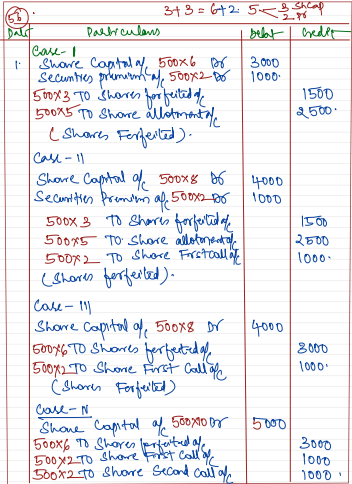 56. 3+3 = 6+2 5 3 Sh Cap
2 Pr
Date Particulars Debit Credit
Case - I
1. Share Capital a/c 500x6 Dr 3000
Securities premium a/c 500x2 Dr 1000.
500x3 To Shares forfeited a/c 1500
500x5 To Share allotment a/c 2500.
(Shares Forfeited).
Case - II
Share Capital a/c 500x8 Dr 4000
Securities Premium a/c 500x2 Dr 1000
500x3 To Shares forfeited a/c 1500
500x5 To Share allotment a/c 2500
500x2 To Share First call a/c 1000.
(Shares forfeited).
Case - III
Share Capital a/c 500x8 Dr 4000
500x6 To Shares forfeited a/c 3000
500x2 To Share First Call a/c 1000.
(Shares Forfeited)
Case - IV
Share Capital a/c 500x10 Dr 5000
500x6 To Shares forfeited a/c 3000
500x2 To Share First call a/c 1000
500x2 To Share Second Call a/c 1000.